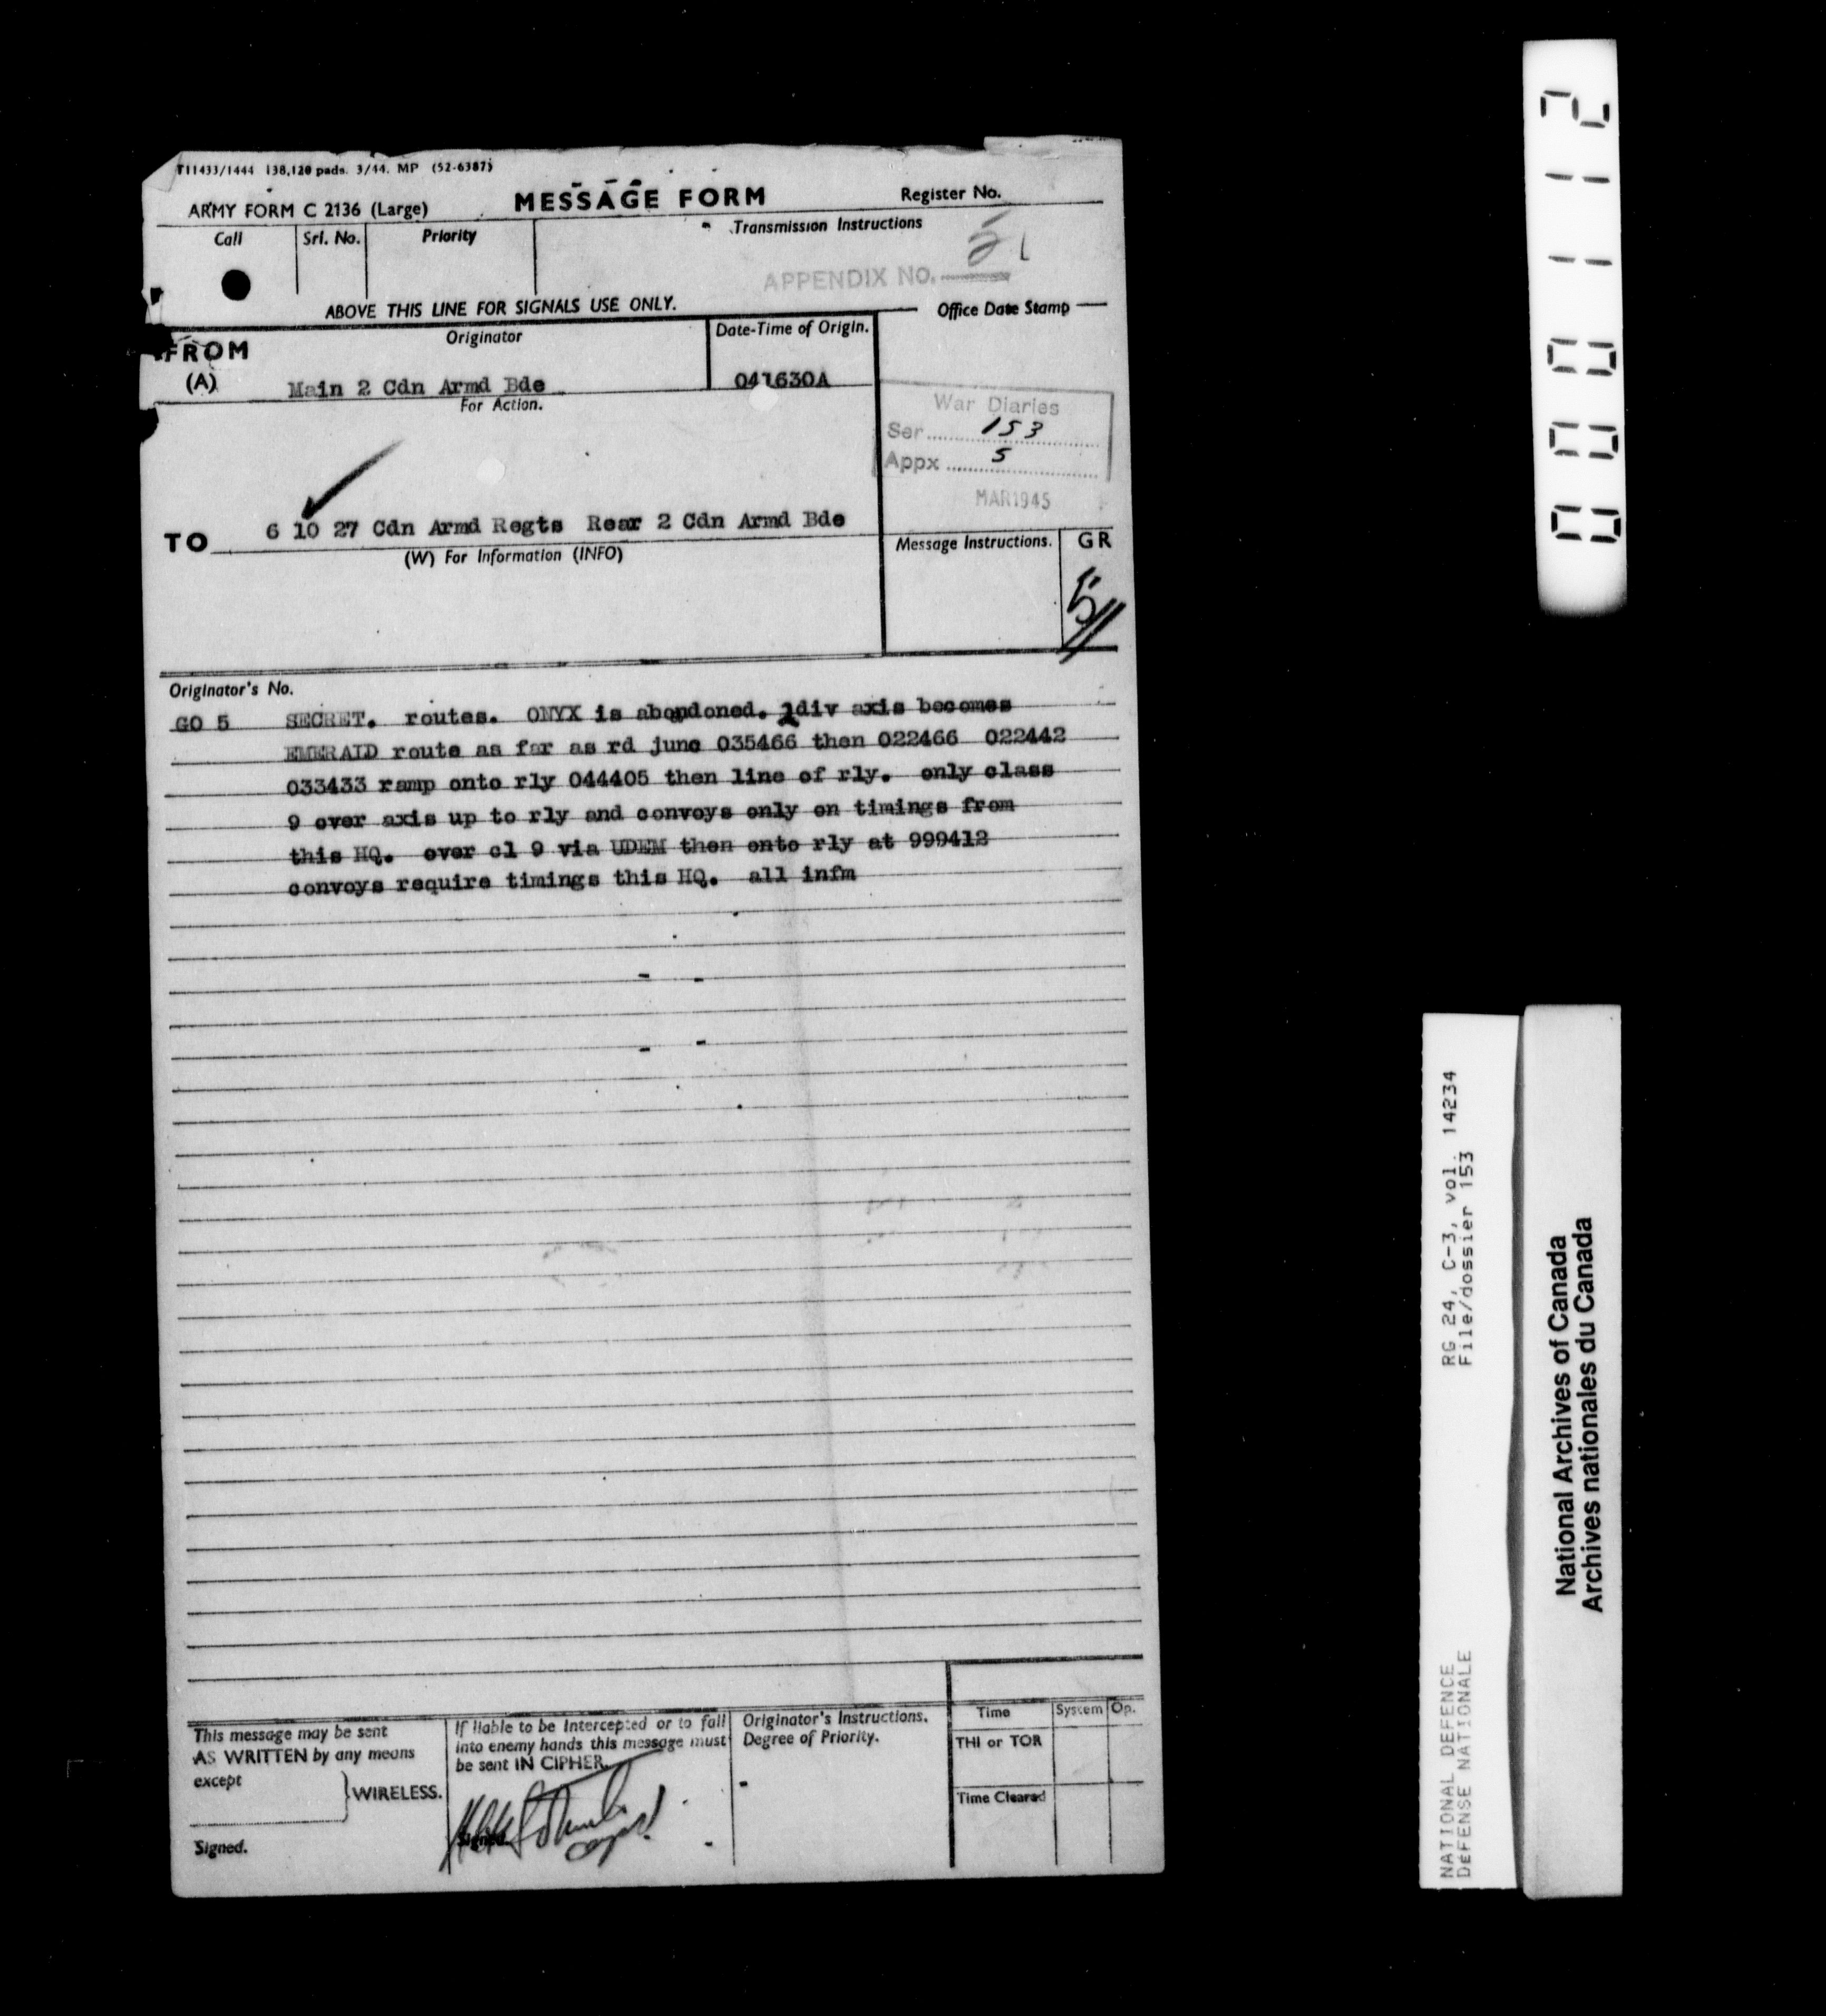 T11433/1444 138,120 pads. 3/44. MP (52-6387)
ARMY FORM C 2136 (Large)
MESSAGE FORM
Register No.
Call
Srl. No.
Priority
Transmission Instructions
5
APPENDIX NO.
ABOVE THIS LINE FOR SIGNALS USE ONLY.
Office Date Stamp
FROM
(A)
Originator
Date-Time of Origin.
Main 2 Cdn Armd Bde
041630A
For Action.
War Diaries
Ser 153
Appx 5
MAR 1945
TO 6 10 27 Cdn Armd Regts Rear 2 Cdn Armd Bde
(W) For Information (INFO)
Message Instructions.
GR
Originator's No.
GO 5 SECRET. routes. ONYX is abondoned. 2div axis becomes
EMERALD route as far as rd junc 035466 then 022466 022442
033433 ramp onto rly 044405 then line of rly. only class
9 over axis up to rly and convoys only on timings from
this HQ. over cl 9 via UDEM then onto rly at 999412
convoys require timings this HQ. all infm
This message may be sent
AS WRITTEN by any means
except
WIRELESS.
Signed.
If liable to be intercepted or to fall
into enemy hands this message must
be sent IN CIPHER.
Signed.
Originator's Instructions.
Degree of Priority.
Time
System
Op.
THI or TOR
Time Cleared
00001112
RG 24, C-3, vol. 14234
File/dossier 153
NATIONAL DEFENCE
DÉFENSE NATIONALE
National Archives of Canada
Archives nationales du Canada